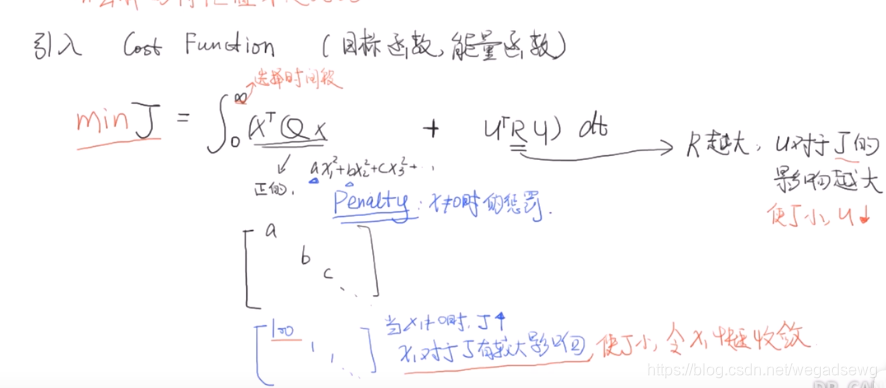 引入 Cost Function (目标函数,能量函数)
选择时间段
min J = ∫₀^∞ (xᵀQx + uᵀRu) dt
R越大,u对于J的
影响越大
使J小,u↓
正的, ax₁²+bx₂²+cx₃²+..
Penalty:x≠0时的惩罚.
a
b
c
100
1
1
当x₁≠0时,J↑
x₁对于J有较大影响,使J小,令x₁快速收敛
https://blog.csdn.net/wegadsewg